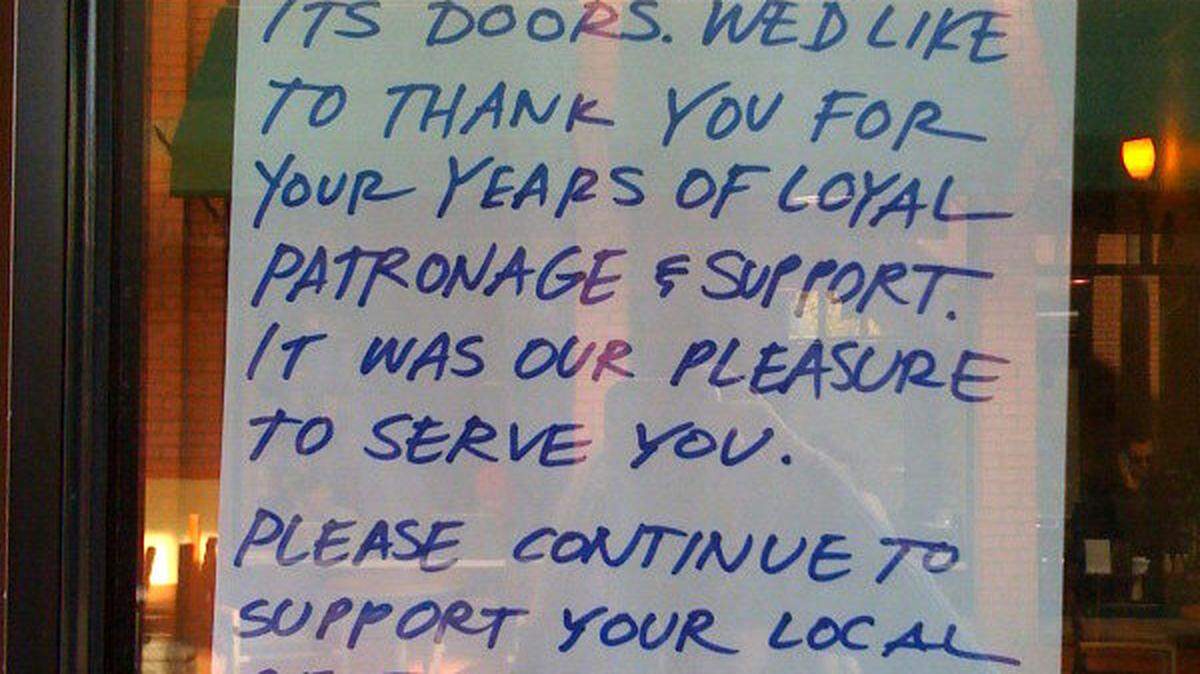 ITS DOORS. WE'D LIKE
TO THANK YOU FOR
YOUR YEARS OF LOYAL
PATRONAGE & SUPPORT.
IT WAS OUR PLEASURE
TO SERVE YOU.
PLEASE CONTINUE TO
SUPPORT YOUR LOCAL